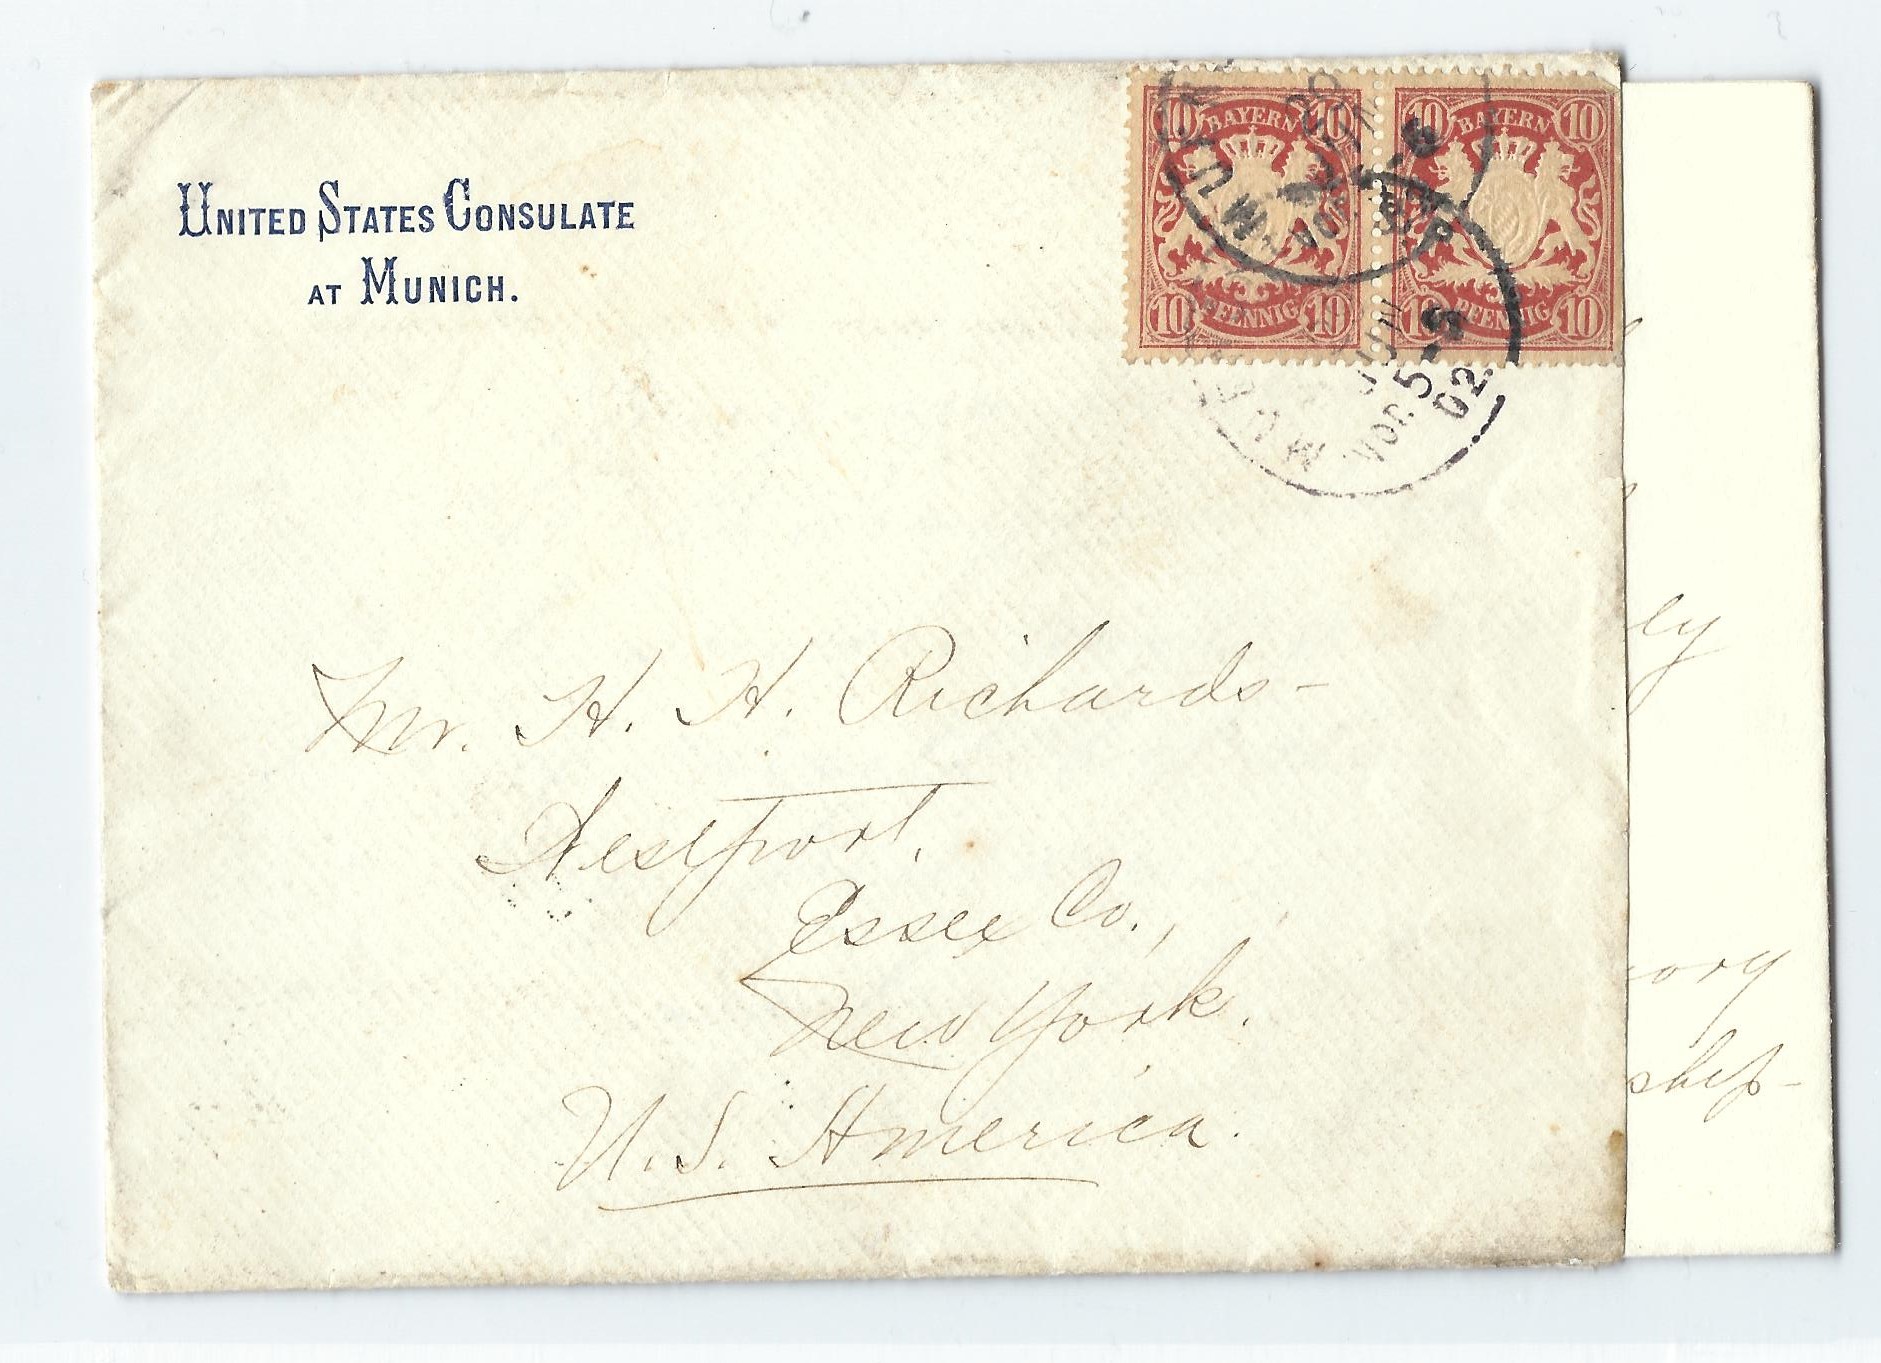 UNITED STATES CONSULATE
AT MUNICH.
10 BAYERN 10
10 PFENNIG 10
10 BAYERN 10
10 PFENNIG 10
VOR. 5-6
02.
Mr. H. H. Richards-
Westport,
Essex Co.,
New York.
U. S. America.